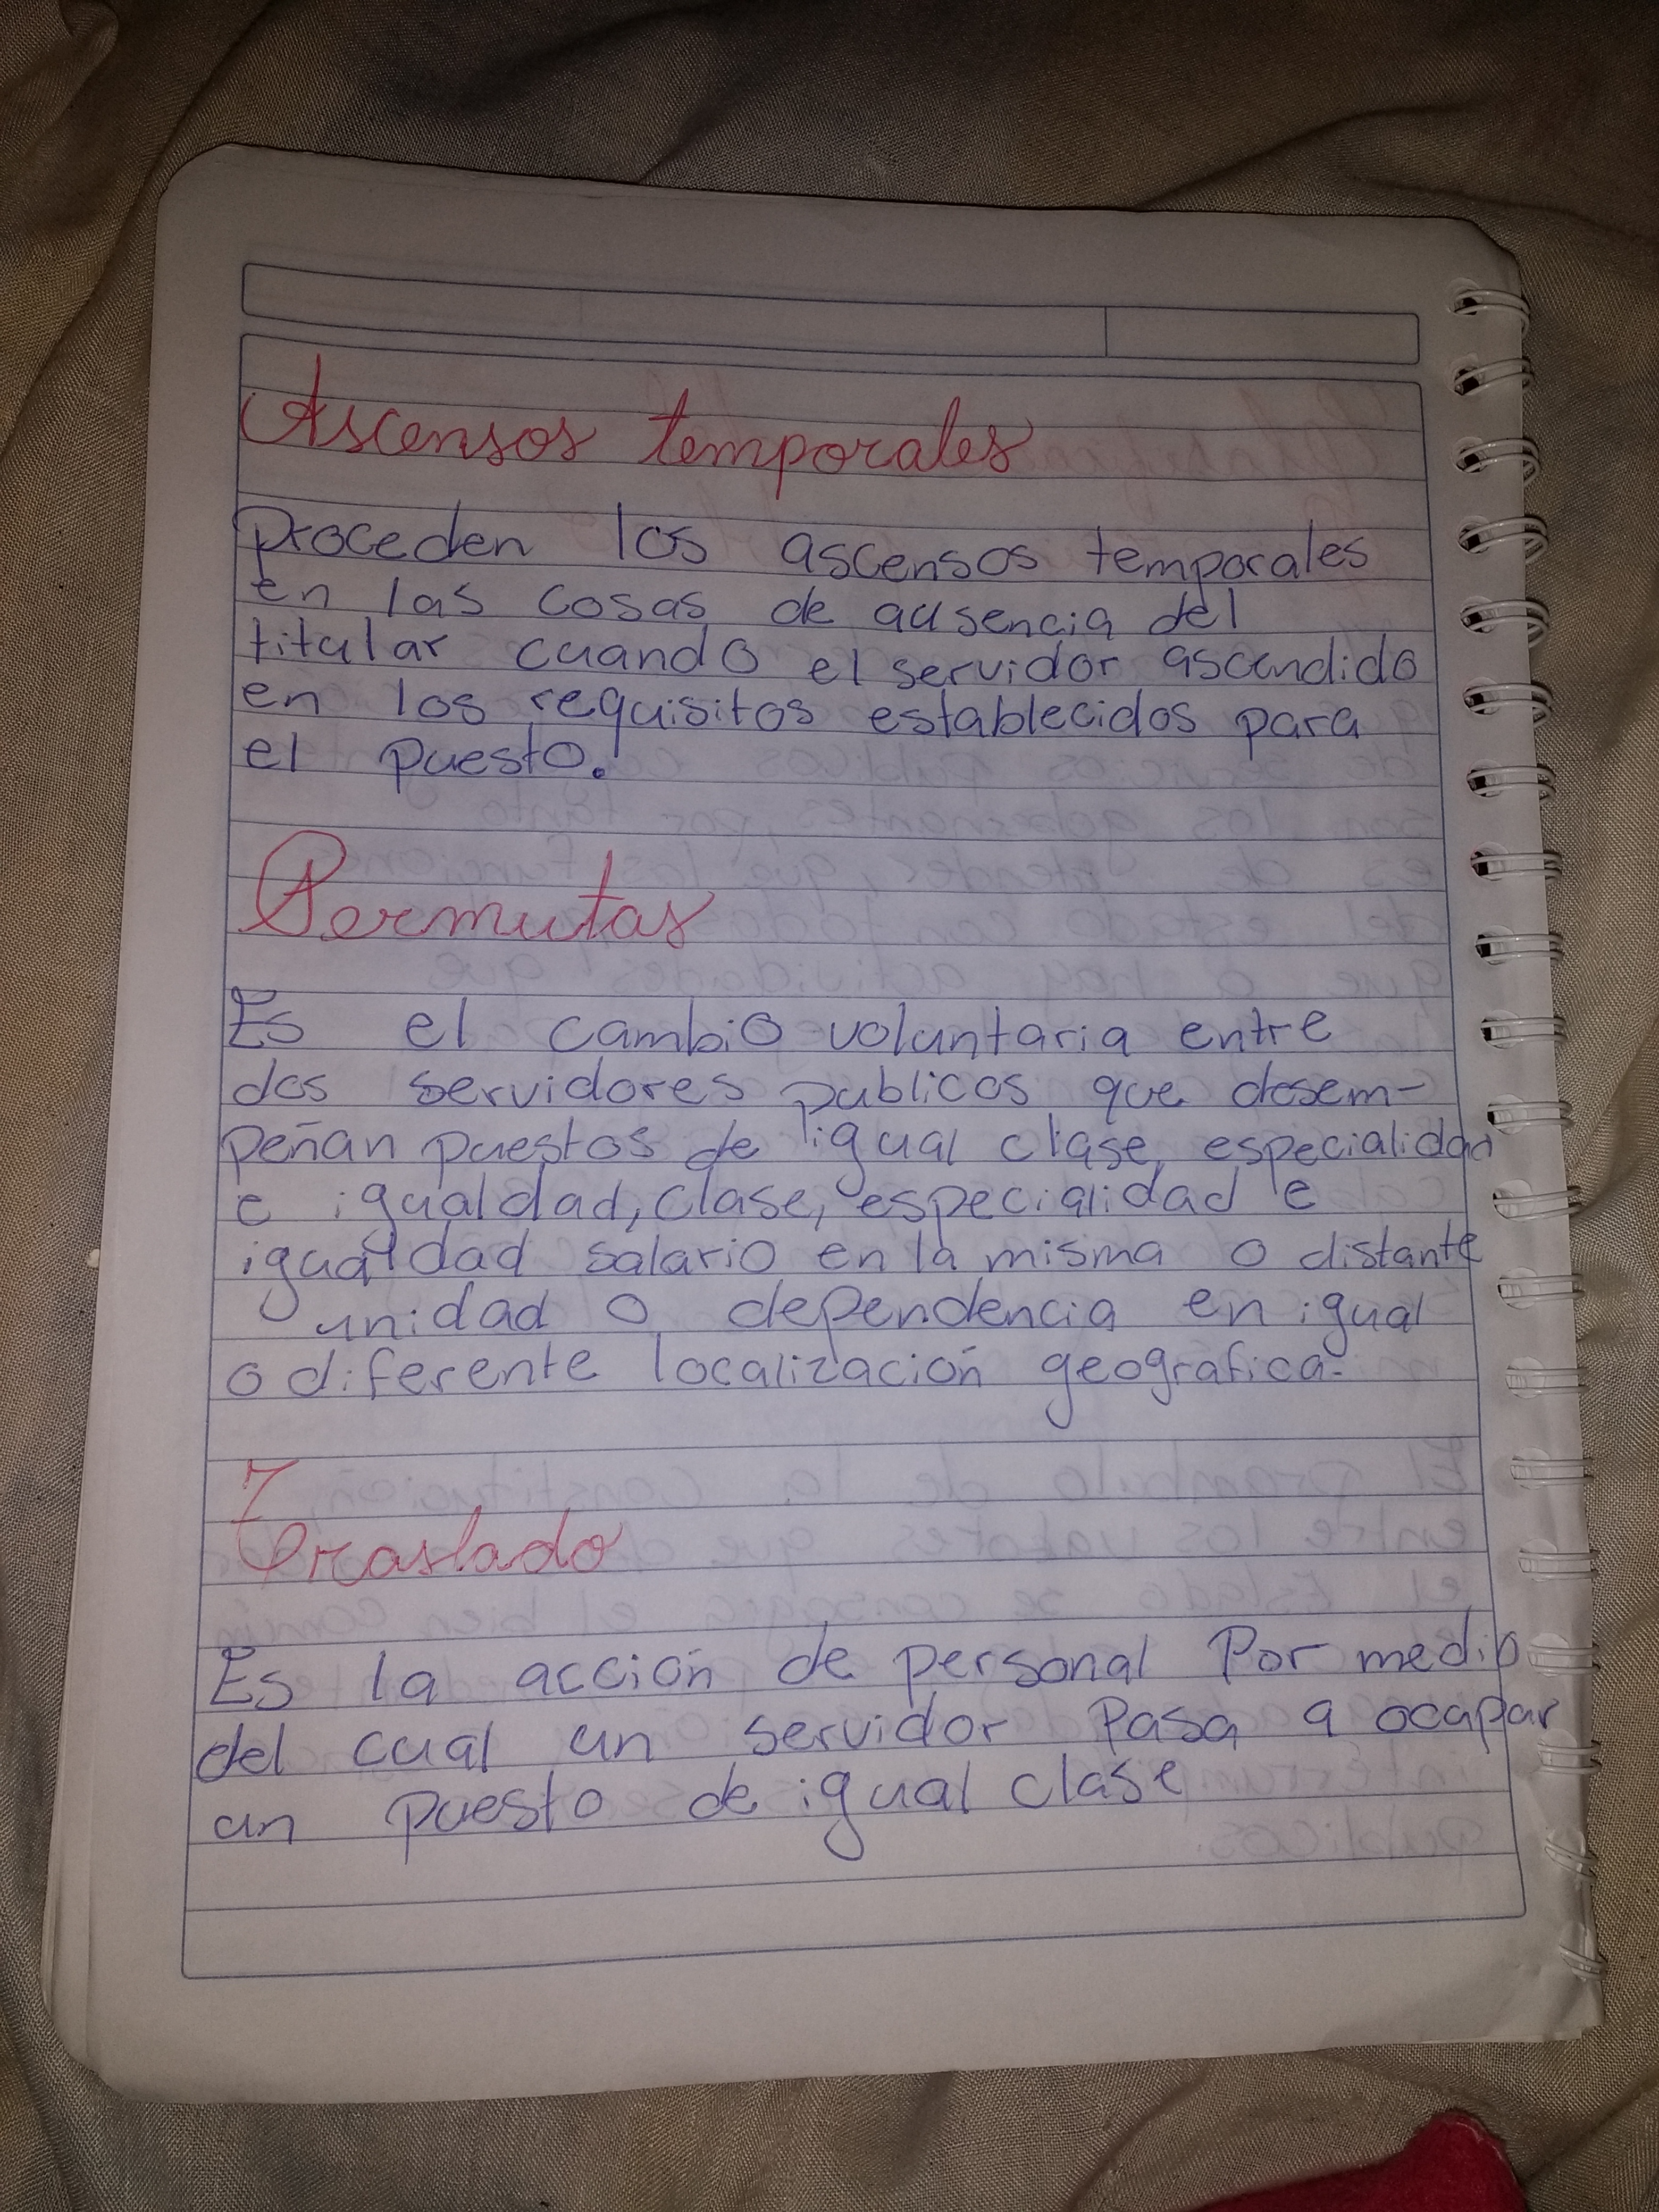 Ascensos temporales
Proceden los ascensos temporales
en las cosas de ausencia del
titular cuando el servidor ascendido
en los requisitos establecidos para
el puesto.
Permutas
Es el cambio voluntaria entre
dos servidores publicos que desem-
peñan puestos de igual clase, especialidad
e igualdad, clase, especialidad e
igualdad salario en la misma o distante
unidad o dependencia en igual
o diferente localización geografica.
Traslado
Es la acción de personal Por medio
del cual un servidor Pasa a ocupar
un puesto de igual clase